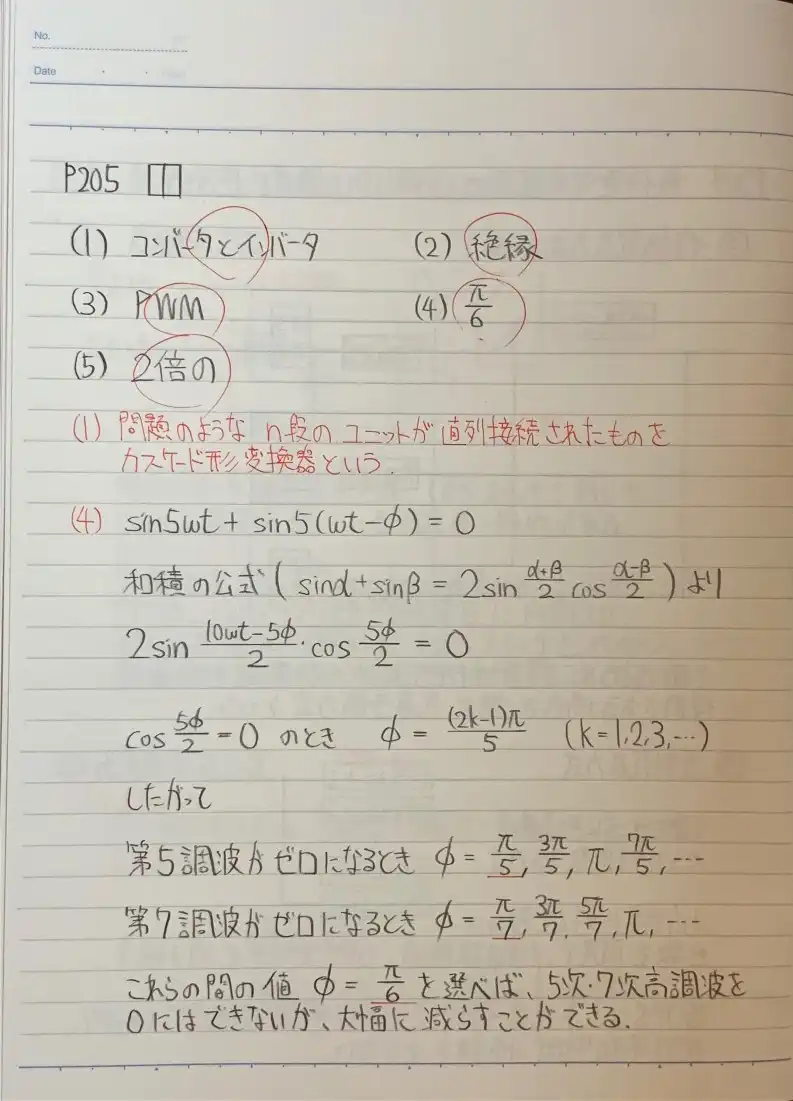 No.
Date
P205 1
(1) コンバータとインバータ (2) 絶縁
(3) PWM (4) π/6
(5) 2倍の
(1) 問題のような n段の ユニットが 直列接続されたものを
カスケード形変換器という.
(4) sin5ωt + sin5(ωt-φ) = 0
和積の公式 ( sinα+sinβ = 2sin (α+β)/2 cos (α-β)/2 ) より
2sin (10ωt-5φ)/2 · cos 5φ/2 = 0
cos 5φ/2 = 0 のとき φ = (2k-1)π/5 (k=1,2,3,…)
したがって
第5調波が ゼロになるとき φ = π/5, 3π/5, π, 7π/5, …
第7調波が ゼロになるとき φ = π/7, 3π/7, 5π/7, π, …
これらの間の値 φ = π/6 を選べば、5次・7次高調波を
0にはできないが、大幅に減らすことができる.